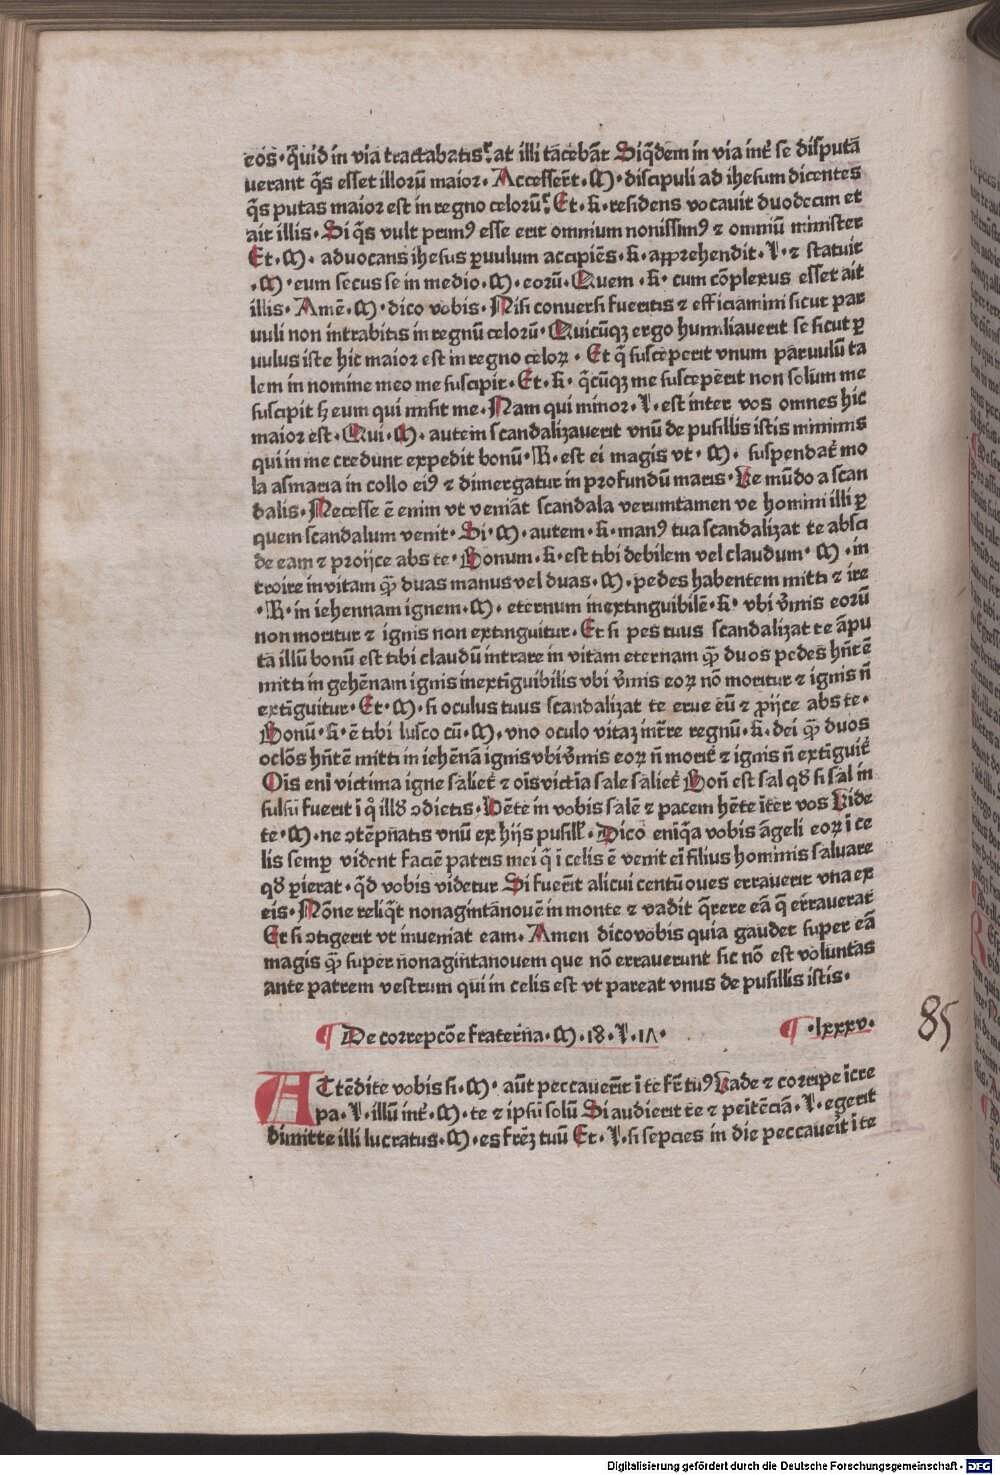 eos· q̄uid in via tractabatis·̛ at illi tacebāt Siq̄dem in via int̄ se disputā
uerant q̄s esset illorū maior· Accesserūt·M· discipuli ad ihesum dicentes
q̄s putas maior est in regno celorū·̛ Et·k· residens vocavit duodecim et
ait illis· Si q̄s vult primꝰ esse erit omnium nonissimꝰ ⁊ omniū minister
Et·M· aduocans ihesus ꝑuulum accipiēs·k· apprehendit·L· ⁊ statuit
·M· eum secus se in medio·M· eorū· Quem·k· cum cōplexus esset ait
illis· Amē·M· dico vobis· Nisi conuersi fueritis ⁊ efficiamini sicut par
vuli non intrabitis in regnū celorū· Quicūqꝫ ergo humiliauerit se sicut ꝑ
uulus iste hic maior est in regno celoꝝ· Et q̄ susceperit vnum paruulū ta
lem in nomine meo me suscipit· Et·k· q̄cūqꝫ me susceperit non solum me
suscipit sꝫ eum qui misit me· Nam qui minor·L· est inter vos omnes hic
maior est· Qui·M· autem scandalizauerit vnū de pusillis istis minimis
qui in me credunt expedit bonū·R· est ei magis vt·M· suspendat̄ mo
la asinaria in collo eiꝰ ⁊ dimergatur in profundū maris· Ve mūdo a scan
dalis· Necesse ē enim vt veniāt scandala veruntamen ve homini illi ꝑ
quem scandalum venit· Si·M· autem·k· manꝰ tua scandalizat te absci
de eam ⁊ proijce abs te· Bonum·k· est tibi debilem vel claudum·M· in
troire in vitam q̄ꝫ duas manus vel duas·M· pedes habentem mitti ⁊ ire
·R· in iehennam ignem·M· eternum inextinguibilē·k· vbi v̄mis eorū
non moritur ⁊ ignis non extinguitur· Et si pes tuus scandalizat te āpu
ta illū bonū est tibi claudū intrare in vitam eternam q̄ꝫ duos pedes hn̄tē
mitti in gehēnam ignis inextīguibilis vbi v̄mis eoꝝ nō moritur ⁊ ignis n̄
extīguitur· Et·M· si oculus tuus scandalizat te erue eū ⁊ ꝓijce abs te·
Bonū·k· ē tibi lusco cū·M· vno oculo vitaꝫ int̄re regnū·k· dei q̄ꝫ duos
oclōs hn̄tē mitti in iehēnā ignis vbi v̄mis eoꝝ n̄ morit̄ ⁊ ignis n̄ extīguit̄
Oīs eni victima igne saliet̄ ⁊ oīs victīa sale saliet̄ Bon̄ est sal qḋ si sal in
sulsū fuerit ī q̄ illḋ ↄdietis· Hēte in vobis salē ⁊ pacem hēte īter vos Uide
te·M· ne ↄtēpn̄atis vnū ex hijs pusill̄· Dico eniq̄a vobis āgeli eoꝝ ī ce
lis semꝑ vident faciē patris mei q̄ ī celis ē venit eī filius hominis saluare
qḋ ꝑierat· q̄d vobis videtur Si fuerīt alicui centū oues errauerit vna ex
eis· Nōne reliq̄t nonagintanouē in monte ⁊ vadit q̄rere eā q̄ errauerat
Et si ↄtigerit vt inueniat eam· Amen dico vobis quia gaudet super eā
magis q̄ꝫ super nonagintanouem que nō errauerunt sic nō est voluntas
ante patrem vestrum qui in celis est vt pareat vnus de pusillis istis·
¶ De correpcōe fraterna·M·18·L·17· ¶ ·lxxxv·
85
ATtēdite vobis si·M· aūt peccauerīt ī te fr̄ tuꝰ Uade ⁊ corripe īcre
pa·L· illū int̄·M· te ⁊ ipsū solū Si audierit te ⁊ penitēciā·L· egerit
dimitte illi lucratus·M· es fr̄eꝫ tuū Et·L· si sepcies in die peccauerīt ī te
Digitalisierung gefördert durch die Deutsche Forschungsgemeinschaft - DFG